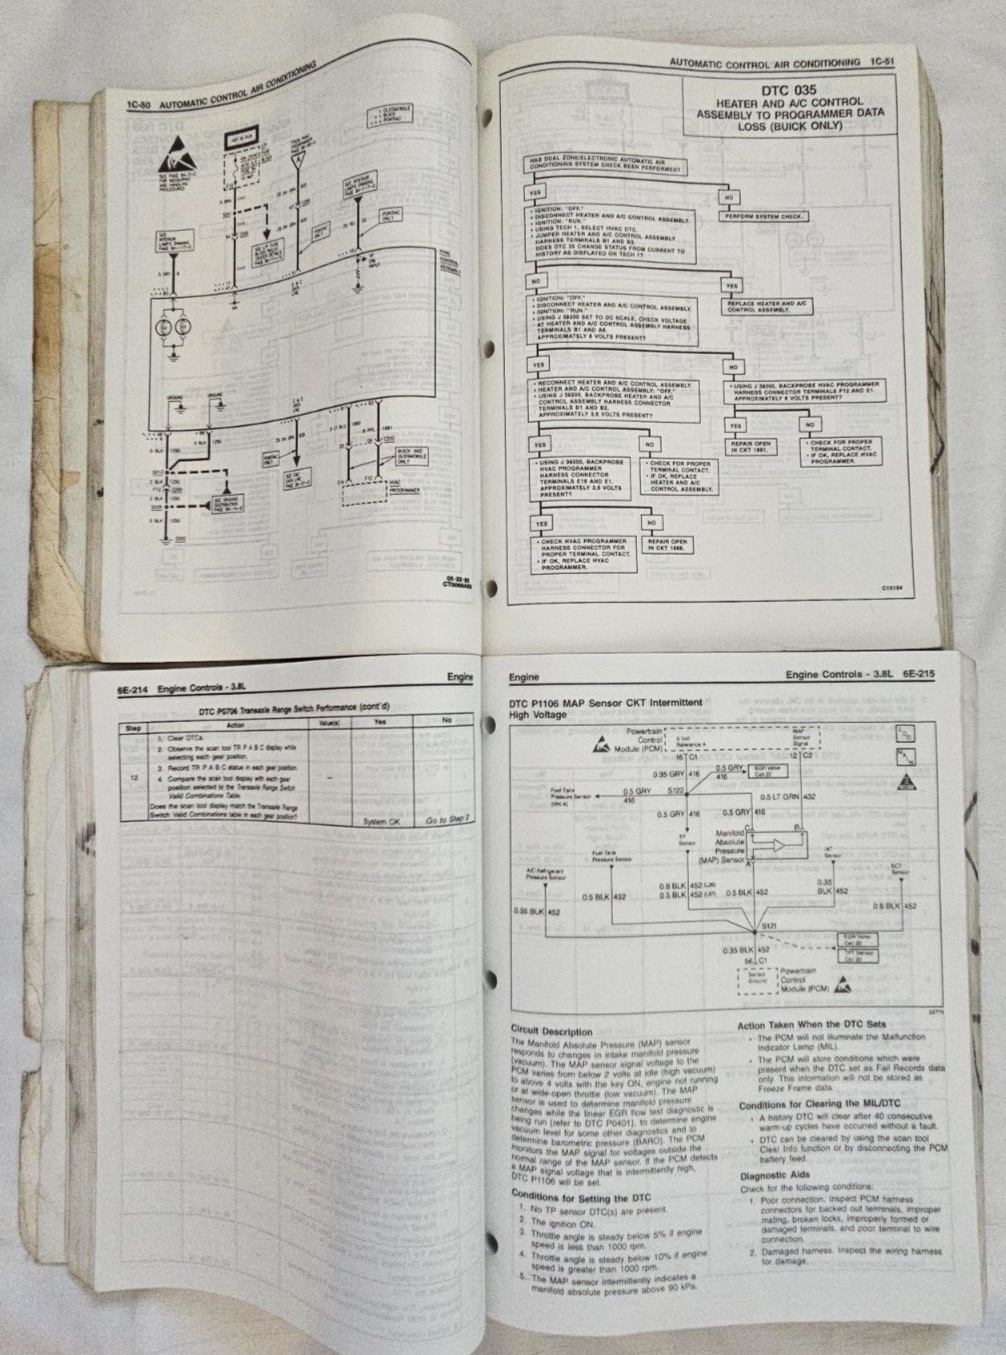 1C-50 AUTOMATIC CONTROL AIR CONDITIONING
OLDSMOBILE
BUICK
PONTIAC
HOT IN RUN
PONTIAC
ONLY
GROUND
GROUND
BUICK AND
OLDSMOBILE
ONLY
HVAC
PROGRAMMER
AUTOMATIC CONTROL AIR CONDITIONING 1C-51
DTC 035
HEATER AND A/C CONTROL
ASSEMBLY TO PROGRAMMER DATA
LOSS (BUICK ONLY)
HAS DUAL ZONE/ELECTRONIC AUTOMATIC AIR
CONDITIONING SYSTEM CHECK BEEN PERFORMED?
YES
NO
• IGNITION: "OFF."
• DISCONNECT HEATER AND A/C CONTROL ASSEMBLY.
• IGNITION: "RUN."
• USING TECH 1, SELECT HVAC DTC.
• JUMPER HEATER AND A/C CONTROL ASSEMBLY
HARNESS TERMINALS B1 AND B2.
DOES DTC 35 CHANGE STATUS FROM CURRENT TO
HISTORY AS DISPLAYED ON TECH 1?
PERFORM SYSTEM CHECK.
NO
YES
• IGNITION: "OFF."
• DISCONNECT HEATER AND A/C CONTROL ASSEMBLY.
• IGNITION: "RUN."
• USING J 39200 SET TO DC SCALE, CHECK VOLTAGE
AT HEATER AND A/C CONTROL ASSEMBLY HARNESS
TERMINALS B1 AND
VOLTS PRESENT?
REPLACE HEATER AND A/C
CONTROL ASSEMBLY.
YES
NO
• RECONNECT HEATER AND A/C CONTROL ASSEMBLY.
• HEATER AND A/C CONTROL ASSEMBLY: "OFF."
• USING J 39200, BACKPROBE HEATER AND A/C
CONTROL ASSEMBLY HARNESS CONNECTOR
TERMINALS B1 AND B2.
APPROXIMATELY VOLTS PRESENT?
• USING J 39200, BACKPROBE HVAC PROGRAMMER
HARNESS CONNECTOR TERMINALS F12 AND E1.
APPROXIMATELY VOLTS PRESENT?
YES
NO
YES
NO
• USING J 39200, BACKPROBE
HVAC PROGRAMMER
HARNESS CONNECTOR
TERMINALS AND E1.
APPROXIMATELY VOLTS
PRESENT?
• CHECK FOR PROPER
TERMINAL CONTACT.
• IF OK, REPLACE
HEATER AND A/C
CONTROL ASSEMBLY.
REPAIR OPEN
IN CKT
• CHECK FOR PROPER
TERMINAL CONTACT.
• IF OK, REPLACE HVAC
PROGRAMMER.
YES
NO
• CHECK HVAC PROGRAMMER
HARNESS CONNECTOR FOR
PROPER TERMINAL CONTACT.
• IF OK, REPLACE HVAC
PROGRAMMER.
REPAIR OPEN
IN CKT
6E-214 Engine Controls - 3.8L Engine
DTC P0706 Transaxle Range Switch Performance (cont'd)
Step Action Value(s) Yes No
12
1. Clear DTCs.
2. Observe the scan tool TR P A B C display while
selecting each gear position.
3. Record TR P A B C status in each gear position.
4. Compare the scan tool display with each gear
position selected to the Transaxle Range Switch
Valid Combinations Table.
Does the scan tool display match the Transaxle Range
Switch Valid Combinations table in each gear position?
– System OK Go to Step 2
Engine Engine Controls - 3.8L 6E-215
DTC P1106 MAP Sensor CKT Intermittent
High Voltage
Powertrain
Control
Module (PCM)
5 Volt
Reference A
MAP
Sensor
Signal
16 C1
12 C2
0.35 GRY 416
0.5 GRY
416
EGR Valve
Fuel Tank
Pressure Sensor
0.5 GRY
416
S122
0.5 LT GRN 432
0.5 GRY 416
0.5 GRY 416
TP
Sensor
Manifold
Absolute
Pressure
(MAP) Sensor
C
B
A
Fuel Tank
Pressure Sensor
A/C Refrigerant
Pressure Sensor
IAT
Sensor
ECT
Sensor
0.5 BLK 452
0.8 BLK 452
0.5 BLK 452
0.5 BLK 452
0.35
BLK 452
0.8 BLK 452
0.35 BLK 452
S121
EGR Valve
TFT Sensor
0.35 BLK 452
56 C1
Sensor
Ground
Powertrain
Control
Module (PCM)
Circuit Description
The Manifold Absolute Pressure (MAP) sensor
responds to changes in intake manifold pressure
(vacuum). The MAP sensor signal voltage to the
PCM varies from below 2 volts at idle (high vacuum)
to above 4 volts with the key ON, engine not running
or at wide-open throttle (low vacuum). The MAP
sensor is used to determine manifold pressure
changes while the linear EGR flow test diagnostic is
being run (refer to DTC P0401), to determine engine
vacuum level for some other diagnostics and to
determine barometric pressure (BARO). The PCM
monitors the MAP signal for voltages outside the
normal range of the MAP sensor. If the PCM detects
a MAP signal voltage that is intermittently high,
DTC P1106 will be set.
Conditions for Setting the DTC
1. No TP sensor DTC(s) are present.
2. The ignition ON.
3. Throttle angle is steady below 5% if engine
speed is less than 1000 rpm.
4. Throttle angle is steady below 10% if engine
speed is greater than 1000 rpm.
5. The MAP sensor intermittently indicates a
manifold absolute pressure above 90 kPa.
Action Taken When the DTC Sets
• The PCM will not illuminate the Malfunction
Indicator Lamp (MIL).
• The PCM will store conditions which were
present when the DTC set as Fail Records data
only. This information will not be stored as
Freeze Frame data.
Conditions for Clearing the MIL/DTC
• A history DTC will clear after 40 consecutive
warm-up cycles have occurred without a fault.
• DTC can be cleared by using the scan tool
Clear Info function or by disconnecting the PCM
battery feed.
Diagnostic Aids
Check for the following conditions:
1. Poor connection. Inspect PCM harness
connectors for backed out terminals, improper
mating, broken locks, improperly formed or
damaged terminals, and poor terminal to wire
connection.
2. Damaged harness. Inspect the wiring harness
for damage.